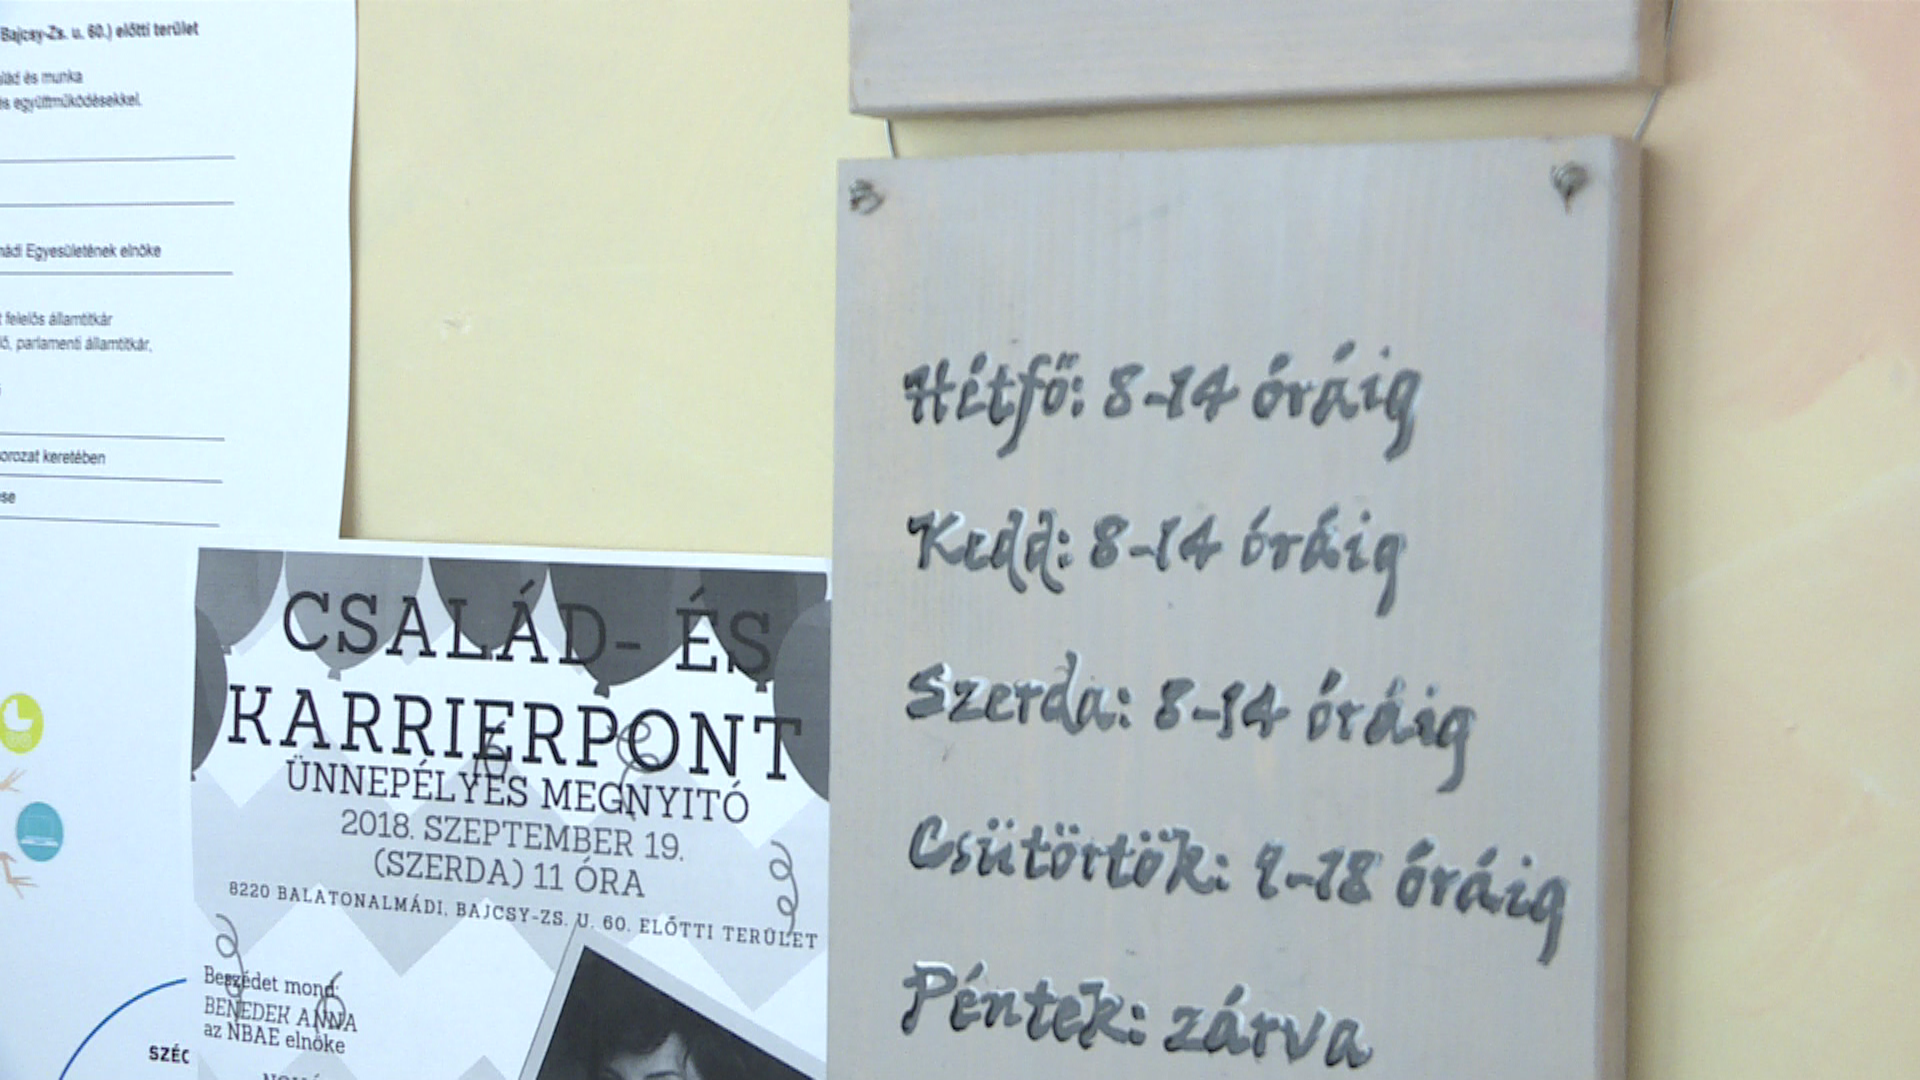 Bajcsy-Zs. u. 60.) előtti terület
és munka
együttműködésekkel.
Egyesületének elnöke
felelős államtitkár
parlamenti államtitkár,
keretében
CSALÁD- ÉS
KARRIERPONT
ÜNNEPÉLYES MEGNYITÓ
2018. SZEPTEMBER 19.
(SZERDA) 11 ÓRA
8220 BALATONALMÁDI, BAJCSY-ZS. U. 60. ELŐTTI TERÜLET
Beszédet mond:
BENEDEK ANNA
az NBAE elnöke
SZÉC
Hétfő: 8-14 óráig
Kedd: 8-14 óráig
Szerda: 8-14 óráig
Csütörtök: 9-18 óráig
Péntek: zárva